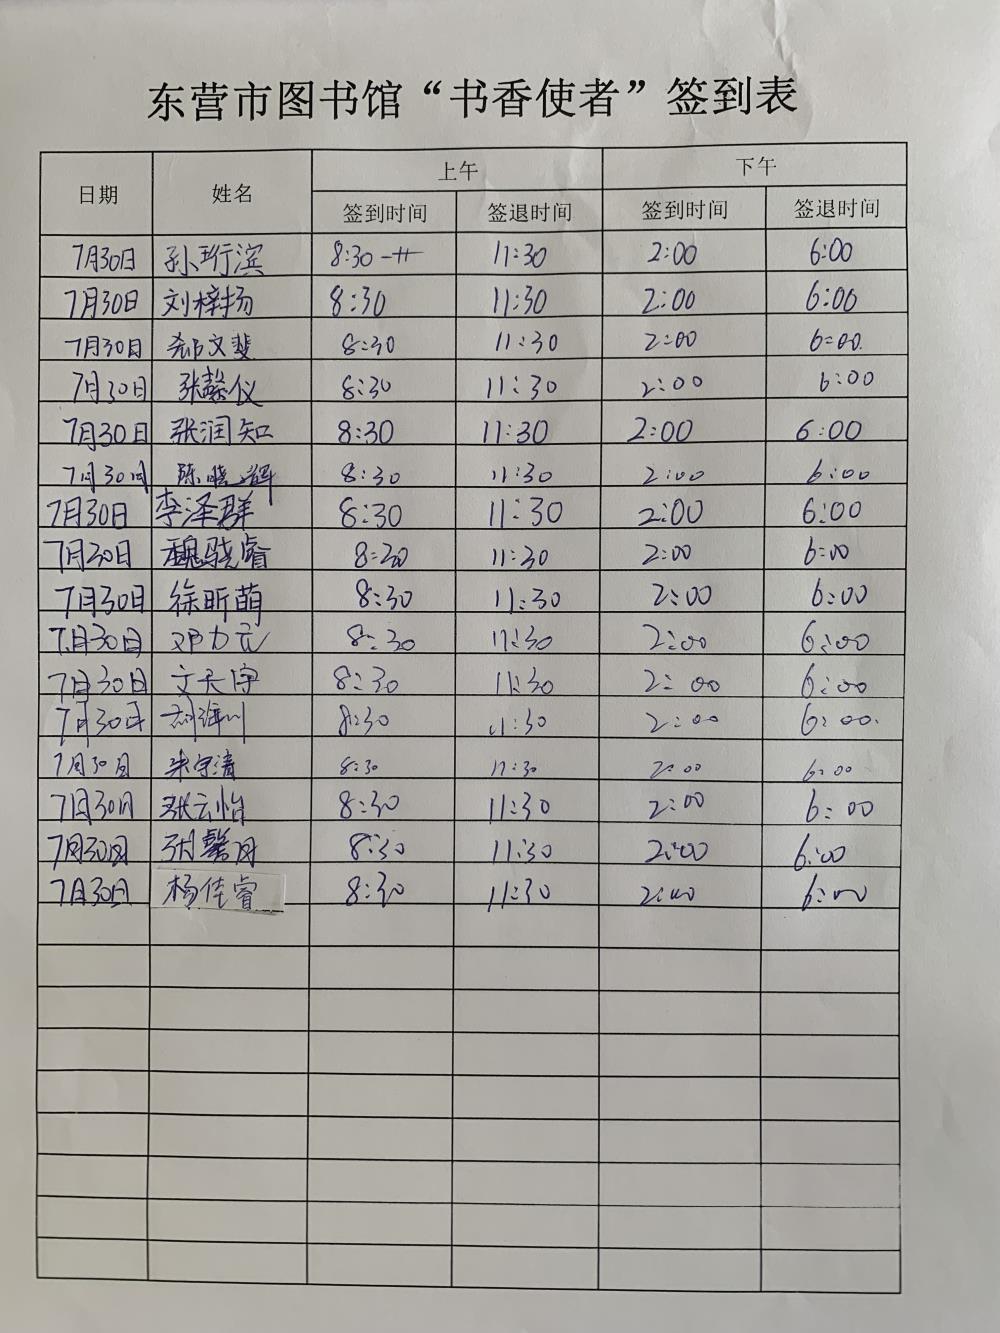 东营市图书馆“书香使者”签到表
日期 姓名 上午 下午
签到时间 签退时间 签到时间 签退时间
7月30日 孙珩滨 8:30 11:30 2:00 6:00
7月30日 刘梓扬 8:30 11:30 2:00 6:00
7月30日 郗文斐 8:30 11:30 2:00 6:00
7月30日 张馨仪 8:30 11:30 2:00 6:00
7月30日 张润知 8:30 11:30 2:00 6:00
7月30日 陈晓辉 8:30 11:30 2:00 6:00
7月30日 李泽群 8:30 11:30 2:00 6:00
7月30日 魏骁睿 8:30 11:30 2:00 6:00
7月30日 徐昕萌 8:30 11:30 2:00 6:00
7月30日 邓力元 8:30 11:30 2:00 6:00
7月30日 文天宇 8:30 11:30 2:00 6:00
7月30日 8:30 11:30 2:00 6:00
7月30日 朱宇清 8:30 11:30 2:00 6:00
7月30日 张云怡 8:30 11:30 2:00 6:00
7月30日 张馨月 8:30 11:30 2:00 6:00
7月30日 杨佳睿 8:30 11:30 2:00 6:00